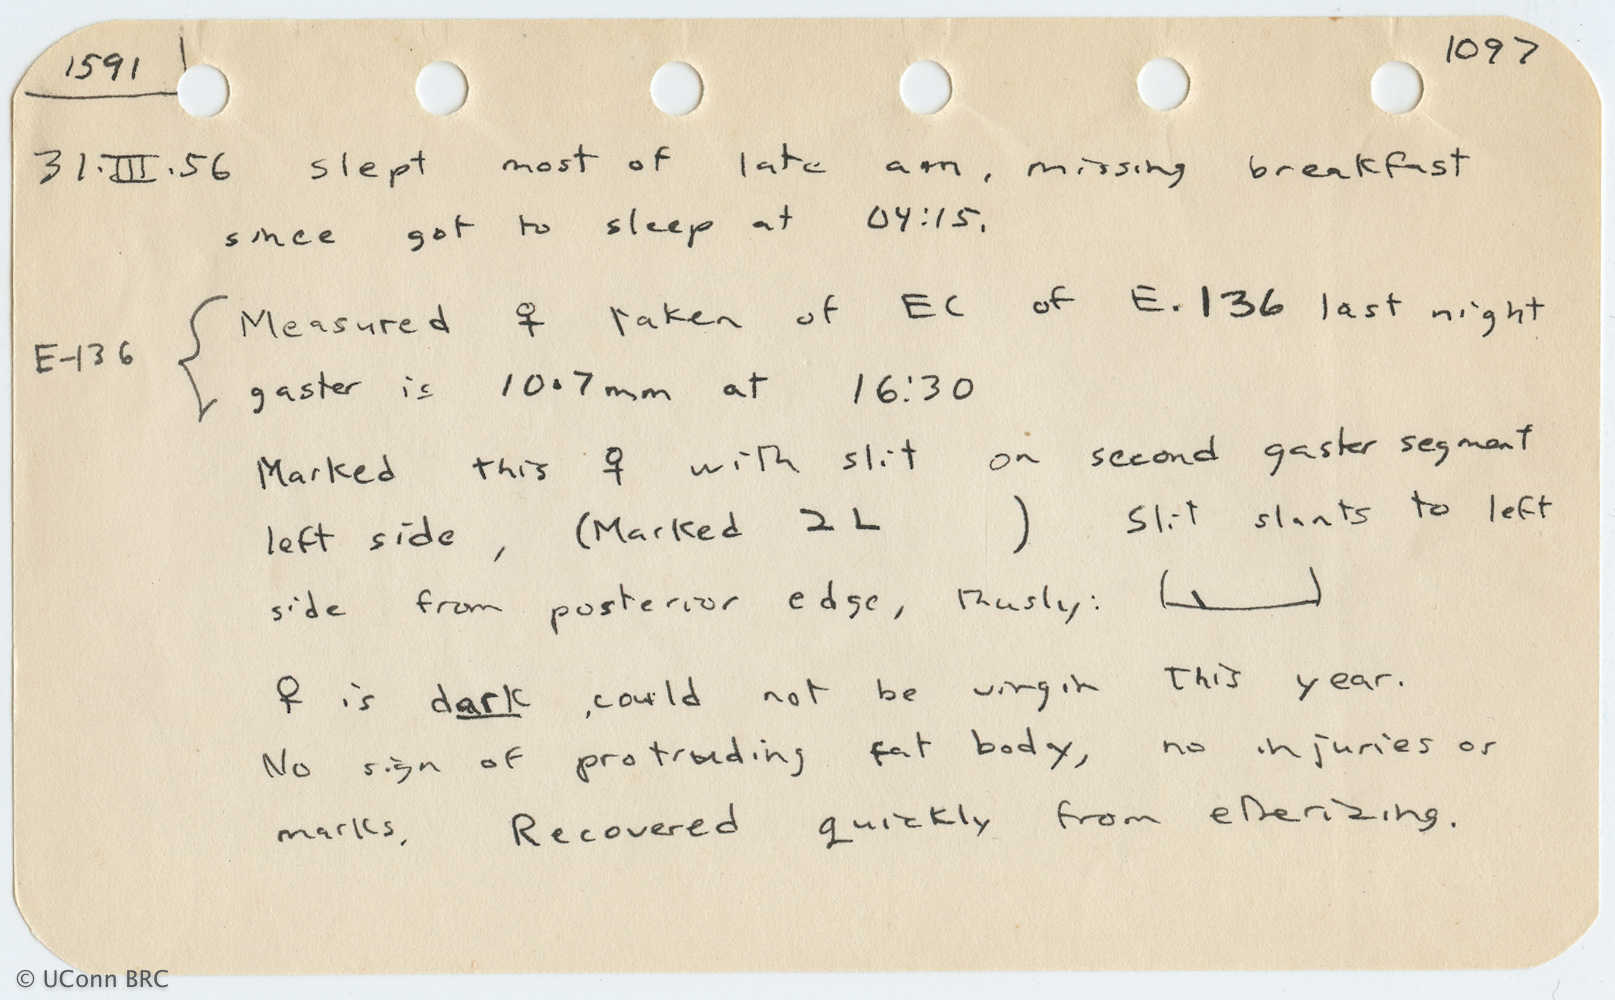 1591
1097
31.III.56 slept most of late am, missing breakfast
since got to sleep at 04:15.
Measured ♀ taken of EC of E.136 last night
E-136
gaster is 10.7mm at 16:30
Marked this ♀ with slit on second gaster segment
left side, (Marked 2L ) Slit slants to left
side from posterior edge, thusly:
♀ is dark, could not be virgin this year.
No sign of protruding fat body, no injuries or
marks. Recovered quickly from etherizing.
© UConn BRC